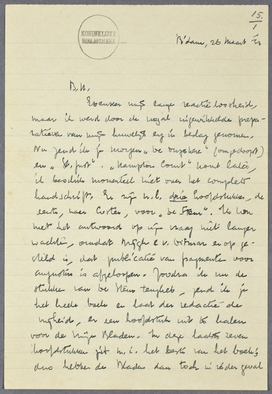 15.
1
KONINKLIJKE
BIBLIOTHEEK
A'dam, 26 maart
B.H.
Excuseer mijn lange reactieloosheid,
maar ik werd door de nogal ingewikkelde prepa-
ratieven van mijn huwelijk erg in beslag genomen.
Nu zend ik je morgen „De
en „ „Hampton Court" komt later,
ik beschik momenteel niet over het complete
handschrift. Er zijn n.l. drie hoofdstukken, de
eerste, naar Coster, voor „De Stem". Ik kon
met het antwoord op mijn vraag niet langer
wachten, omdat Nijgh & v. Ditmar er op ge-
steld is, dat publicatie van fragmenten voor
augustus is afgeloopen. Zoodra ik nu de
stukken van De Stem terugheb, zend ik je
het heele boek en laat der redactie de
vrijheid, er een hoofdstuk uit te halen
voor de Vrije Bladen. In deze laatste zeven
hoofdstukken zit m.i. het beste van het boek;
dus hebben de Bladen dan toch in ieder geval